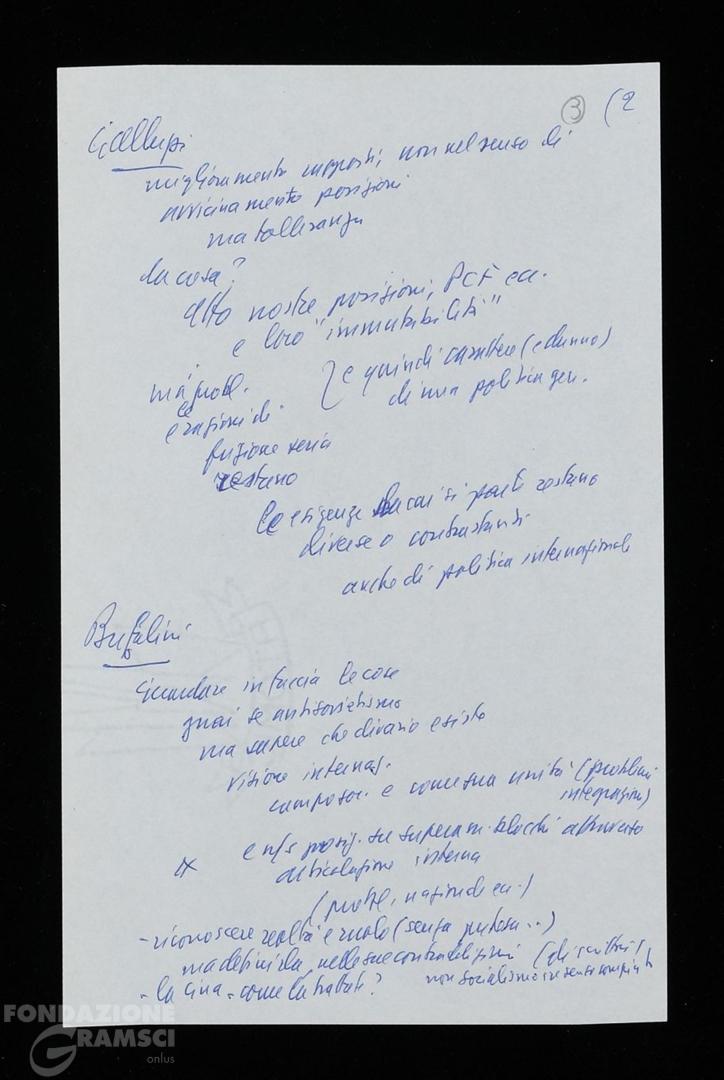 ③ (2
Galluzzi
miglioramento rapporti, non nel senso di
avvicinamento posizioni
ma tolleranza
da cosa?
atto nostre posizioni, PCF ecc.
e loro "immutabilità"
ma probl.
e quindi carattere
di una politica gen.
e ragioni di
seria
restano
Le esigenze da cui si parte restano
diverse o contrastanti
anche di politica internazionale
Bufalini
Guardare in faccia le cose
guai se antisovietismo
ma sapere che divario esiste
visione internaz.
camposoc. e come sua unità (problemi
integrazione)
e ns posiz. su superam. blocchi attraverso
articolazione interna
nazionale ecc.)
- riconoscere realtà e ruolo (senza
ma definirla nelle sue contraddizioni
non socialismo in senso compiuto
- la Cina - come la trattate?
FONDAZIONE
GRAMSCI
onlus